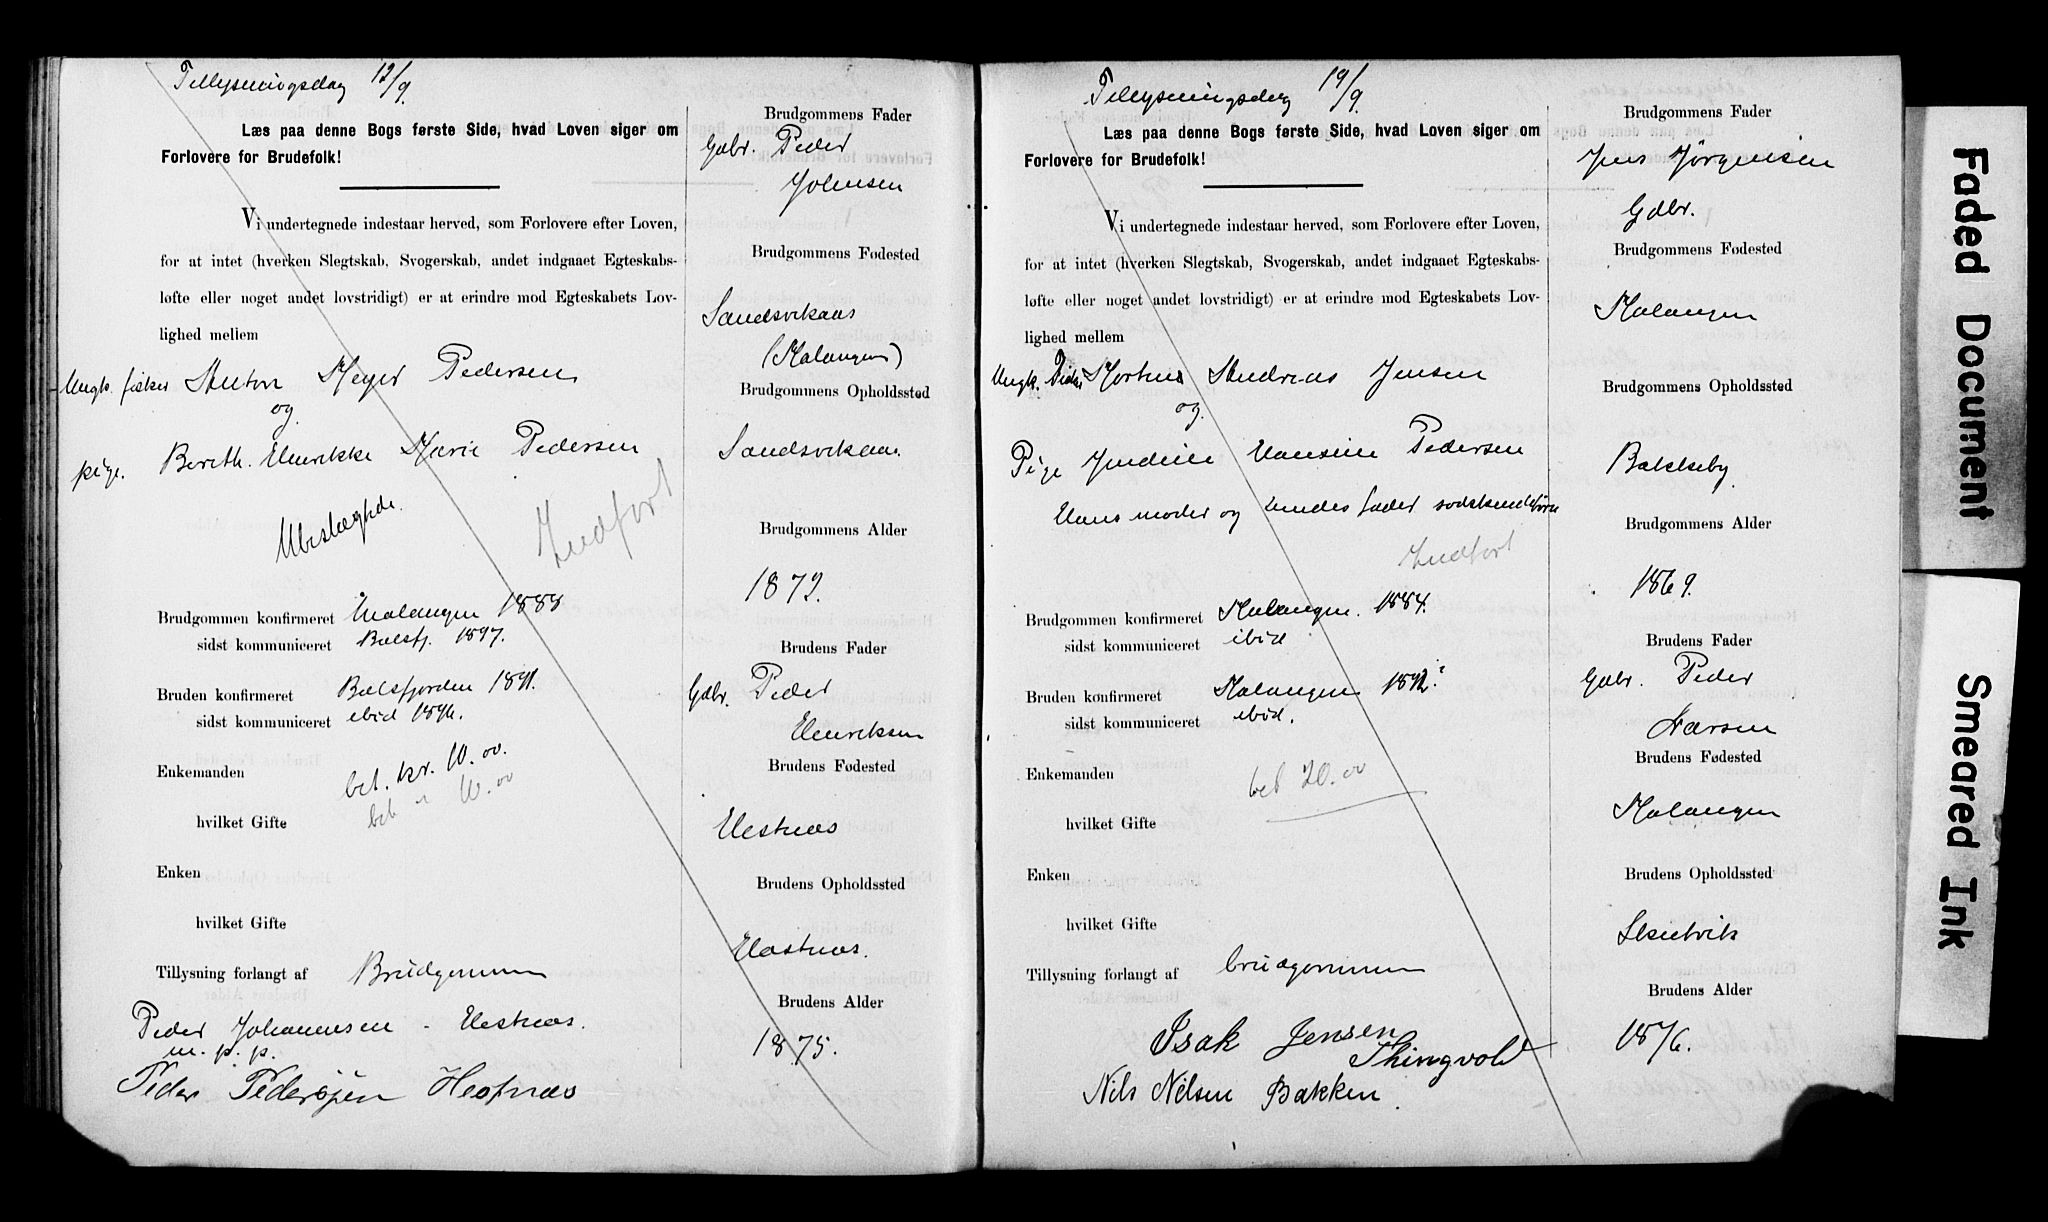 Tillysningsdag 12/9.
Læs paa denne Bogs første Side, hvad Loven siger om
Forlovere for Brudefolk!
Vi undertegnede indestaar herved, som Forlovere efter Loven,
for at intet (hverken Slegtskab, Svogerskab, andet indgaaet Egteskabs-
løfte eller noget andet lovstridigt) er at erindre mod Egteskabets Lov-
lighed mellem
Ungk. fisker Anton Meyer Pedersen
og
pige. Bereth. Henrikke Marie Pedersen
Ubeslægtede.
Indført
Brudgommen konfirmeret Malangen 1888
sidst kommuniceret Balsfj. 1897.
Bruden konfirmeret Balsfjorden 1891.
sidst kommuniceret ibid 1896.
Enkemanden
bet. kr. 10.00.
bet " 10.00
hvilket Gifte
Enken
hvilket Gifte
Tillysning forlangt af Brudgommen
Peder Johannesen - Hestnæs.
m. p. p.
Peder Pedersjen Hestnæs
Brudgommens Fader
Gdbr. Peder
Johnsen
Brudgommens Fødested
Sandsvikaas
(Malangen)
Brudgommens Opholdssted
Sandsvikaas
Brudgommens Alder
1872.
Brudens Fader
Gdbr. Peder
Henriksen
Brudens Fødested
Hestnæs
Brudens Opholdssted
Hestnæs.
Brudens Alder
1875.
Tillysningsdag 19/9.
Læs paa denne Bogs første Side, hvad Loven siger om
Forlovere for Brudefolk!
Vi undertegnede indestaar herved, som Forlovere efter Loven,
for at intet (hverken Slegtskab, Svogerskab, andet indgaaet Egteskabs-
løfte eller noget andet lovstridigt) er at erindre mod Egteskabets Lov-
lighed mellem
Ungk. Fisker Morten Andreas Jensen
og
Pige Indine Hansine Pedersen
Hans moder og hendes fader sødskendebørn
Indført
Brudgommen konfirmeret Malangen. 1884.
sidst kommuniceret ibid
Bruden konfirmeret Malangen 1892.
sidst kommuniceret ibid.
Enkemanden
bet 20.00
hvilket Gifte
Enken
hvilket Gifte
Tillysning forlangt af brudgommen
Isak Jensen
Thingvold
Nils Nilsen Bakken.
Brudgommens Fader
Jens Jørgensen
Gdbr.
Brudgommens Fødested
Malangen
Brudgommens Opholdssted
Bakkeby
Brudgommens Alder
1869.
Brudens Fader
Gdbr. Peder
Larsen
Brudens Fødested
Malangen
Brudens Opholdssted
Skutvik
Brudens Alder
1876.
Faded Document
Smeared Ink